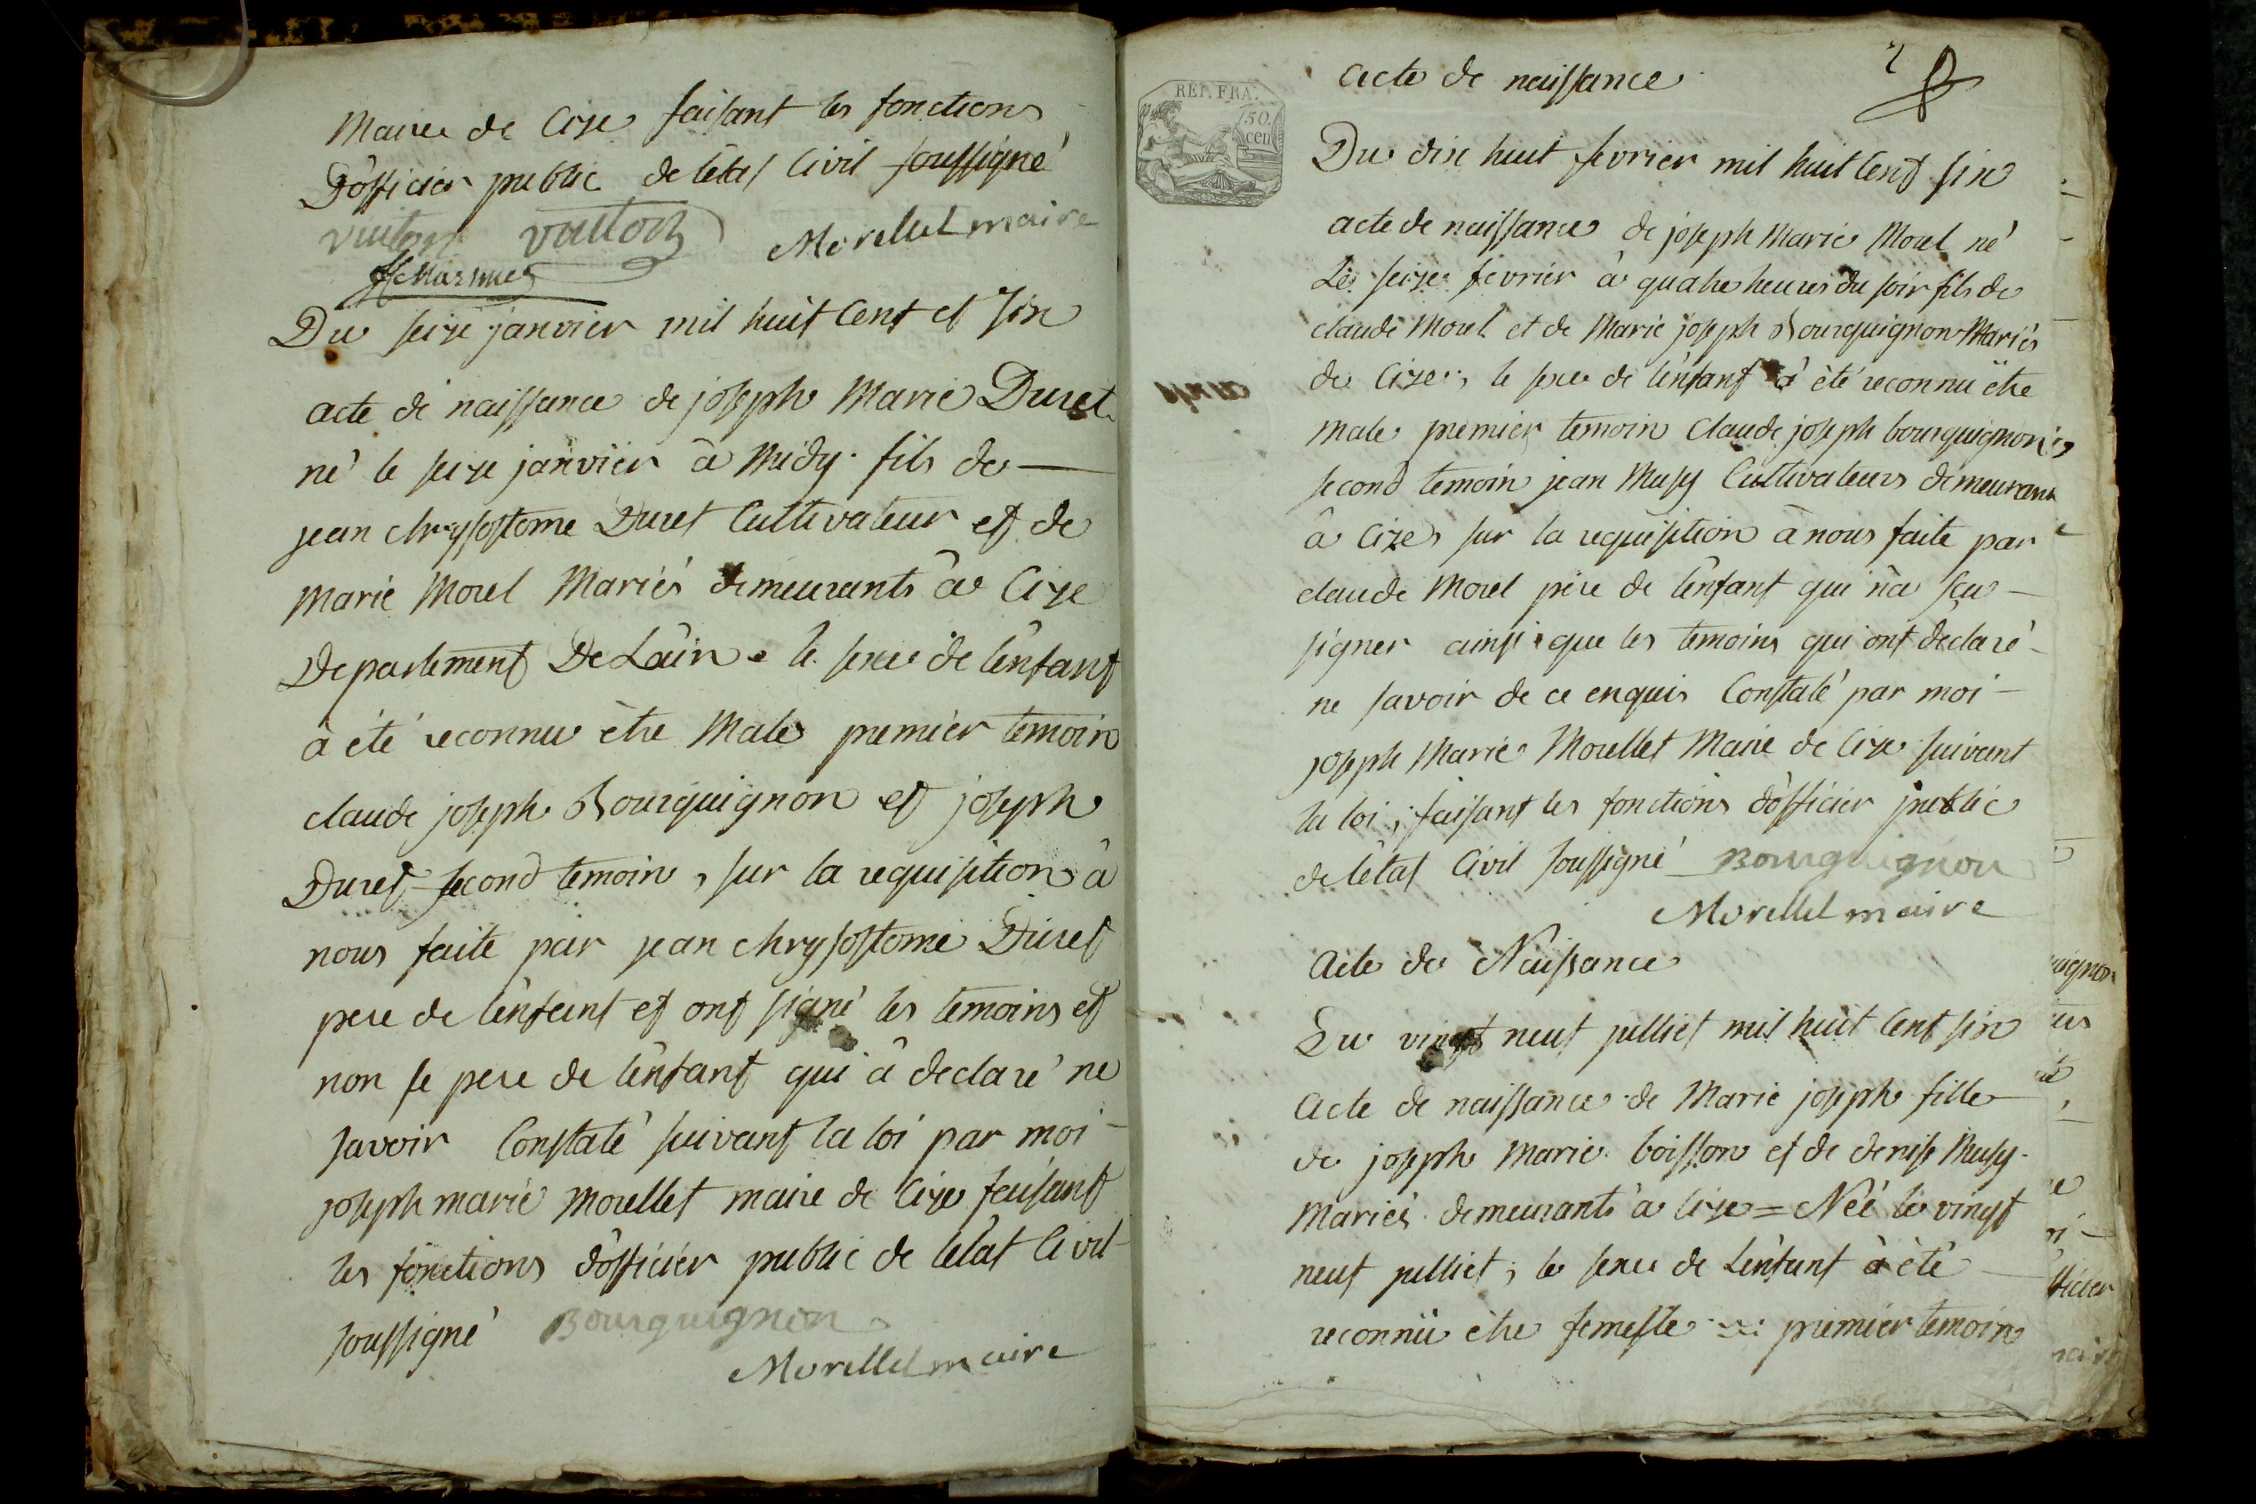 Maire de Cize faisant les fonctions
D'officier public de l'état Civil soussigné
vuiton vuiton Morellet maire
Du seize janvier mil huit Cent et six
acte de naissance de joseph Marie Duret
né le seize janvier à midy fils de
jean chrysostome Duret Cultivateur et de
Marie Morel Mariés demeurants à Cize
Departement De Lain le sexe de l'enfant
à été reconnu être Male premier temoin
claude joseph Bourguignon et joseph
Duret second temoin, sur la requisition à
nous faite par jean chrysostome Duret
pere de l'enfant et ont signé les temoins et
non le pere de l'enfant qui à declaré ne
savoir Constaté suivant la loi par moi
joseph marie morellet maire de Cize faisant
les fonctions d'officier public de l'état Civil
soussigné Bourguignon
Morellet maire
REP. FRA.
50.
cen
acte de naissance
2
Du dix huit fevrier mil huit Cent six
acte de naissance de joseph Marie Morel né
Le seize fevrier à quatre heures du soir fils de
claude Morel et de Marie joseph Bourguignon Mariés
de Cize, le sexe de l'enfant à été reconnu être
male premier temoin Claude joseph bourguignon,
second temoin jean Musy Cultivateurs demeurants
à Cize, sur la requisition à nous faite par
claude Morel père de l'enfant qui n'a sçu
signer ainsi que les temoins qui ont declaré
ne savoir de ce enquis Constaté par moi
joseph Marie Morellet Maire de Cize suivant
la loi, faisant les fonctions d'officier public
de l'état Civil soussigné Bourguignon
Morellet maire
Acte de Naissance
Du vingt neuf julliet mil huit Cent six
Acte de naissance de Marie joseph fille
de joseph Marie boisson et de denise Musy
Mariés demeurants à Cize = Néé le vingt
neuf julliet, le sexe de L'enfant à été
reconnu être femelle premier temoin